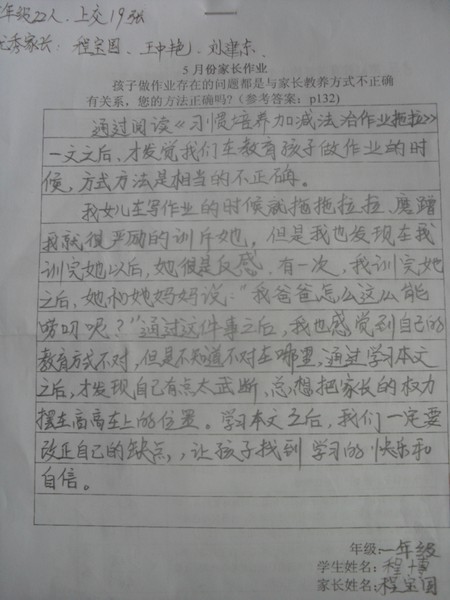 年级22人、上交19张
优秀家长：程宝国、王中艳、刘建东、
5月份家长作业
孩子做作业存在的问题都是与家长教养方式不正确
有关系，您的方法正确吗？（参考答案：p132）
通过阅读《习惯培养加减法治作业拖拉》
一文之后，才发觉我们在教育孩子做作业的时
候，方式方法是相当的不正确。
我女儿在写作业的时候就拖拖拉拉、磨蹭
我就很严励的训斥她，但是我也发现在我
训完她以后，她很是反感，有一次，我训完她
之后，她和她妈妈说："我爸爸怎么这么能
唠叨呢？"通过这件事之后，我也感觉到自己的
教育方式不对，但是不知道不对在哪里，通过学习本文
之后，才发现自己有点太武断，总想把家长的权力
摆在高高在上的位置。学习本文之后，我们一定要
改正自己的缺点，让孩子找到学习的快乐和
自信。
年级：一年级
学生姓名：程博
家长姓名：程宝国